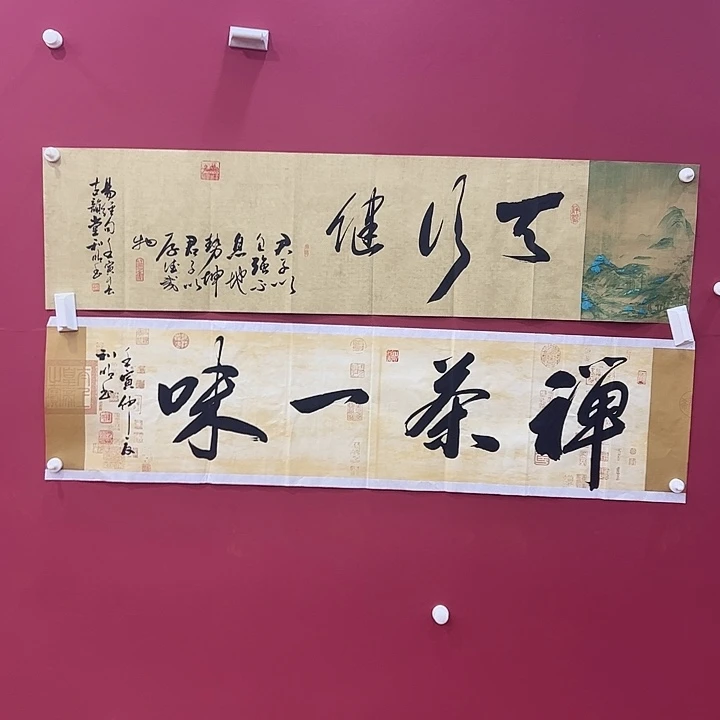 天行健
君子以
自强不
息地
势坤
君子以
厚德载
物
易经句壬寅
古韵堂利明书
禅茶一味
壬寅仲夏
利明书